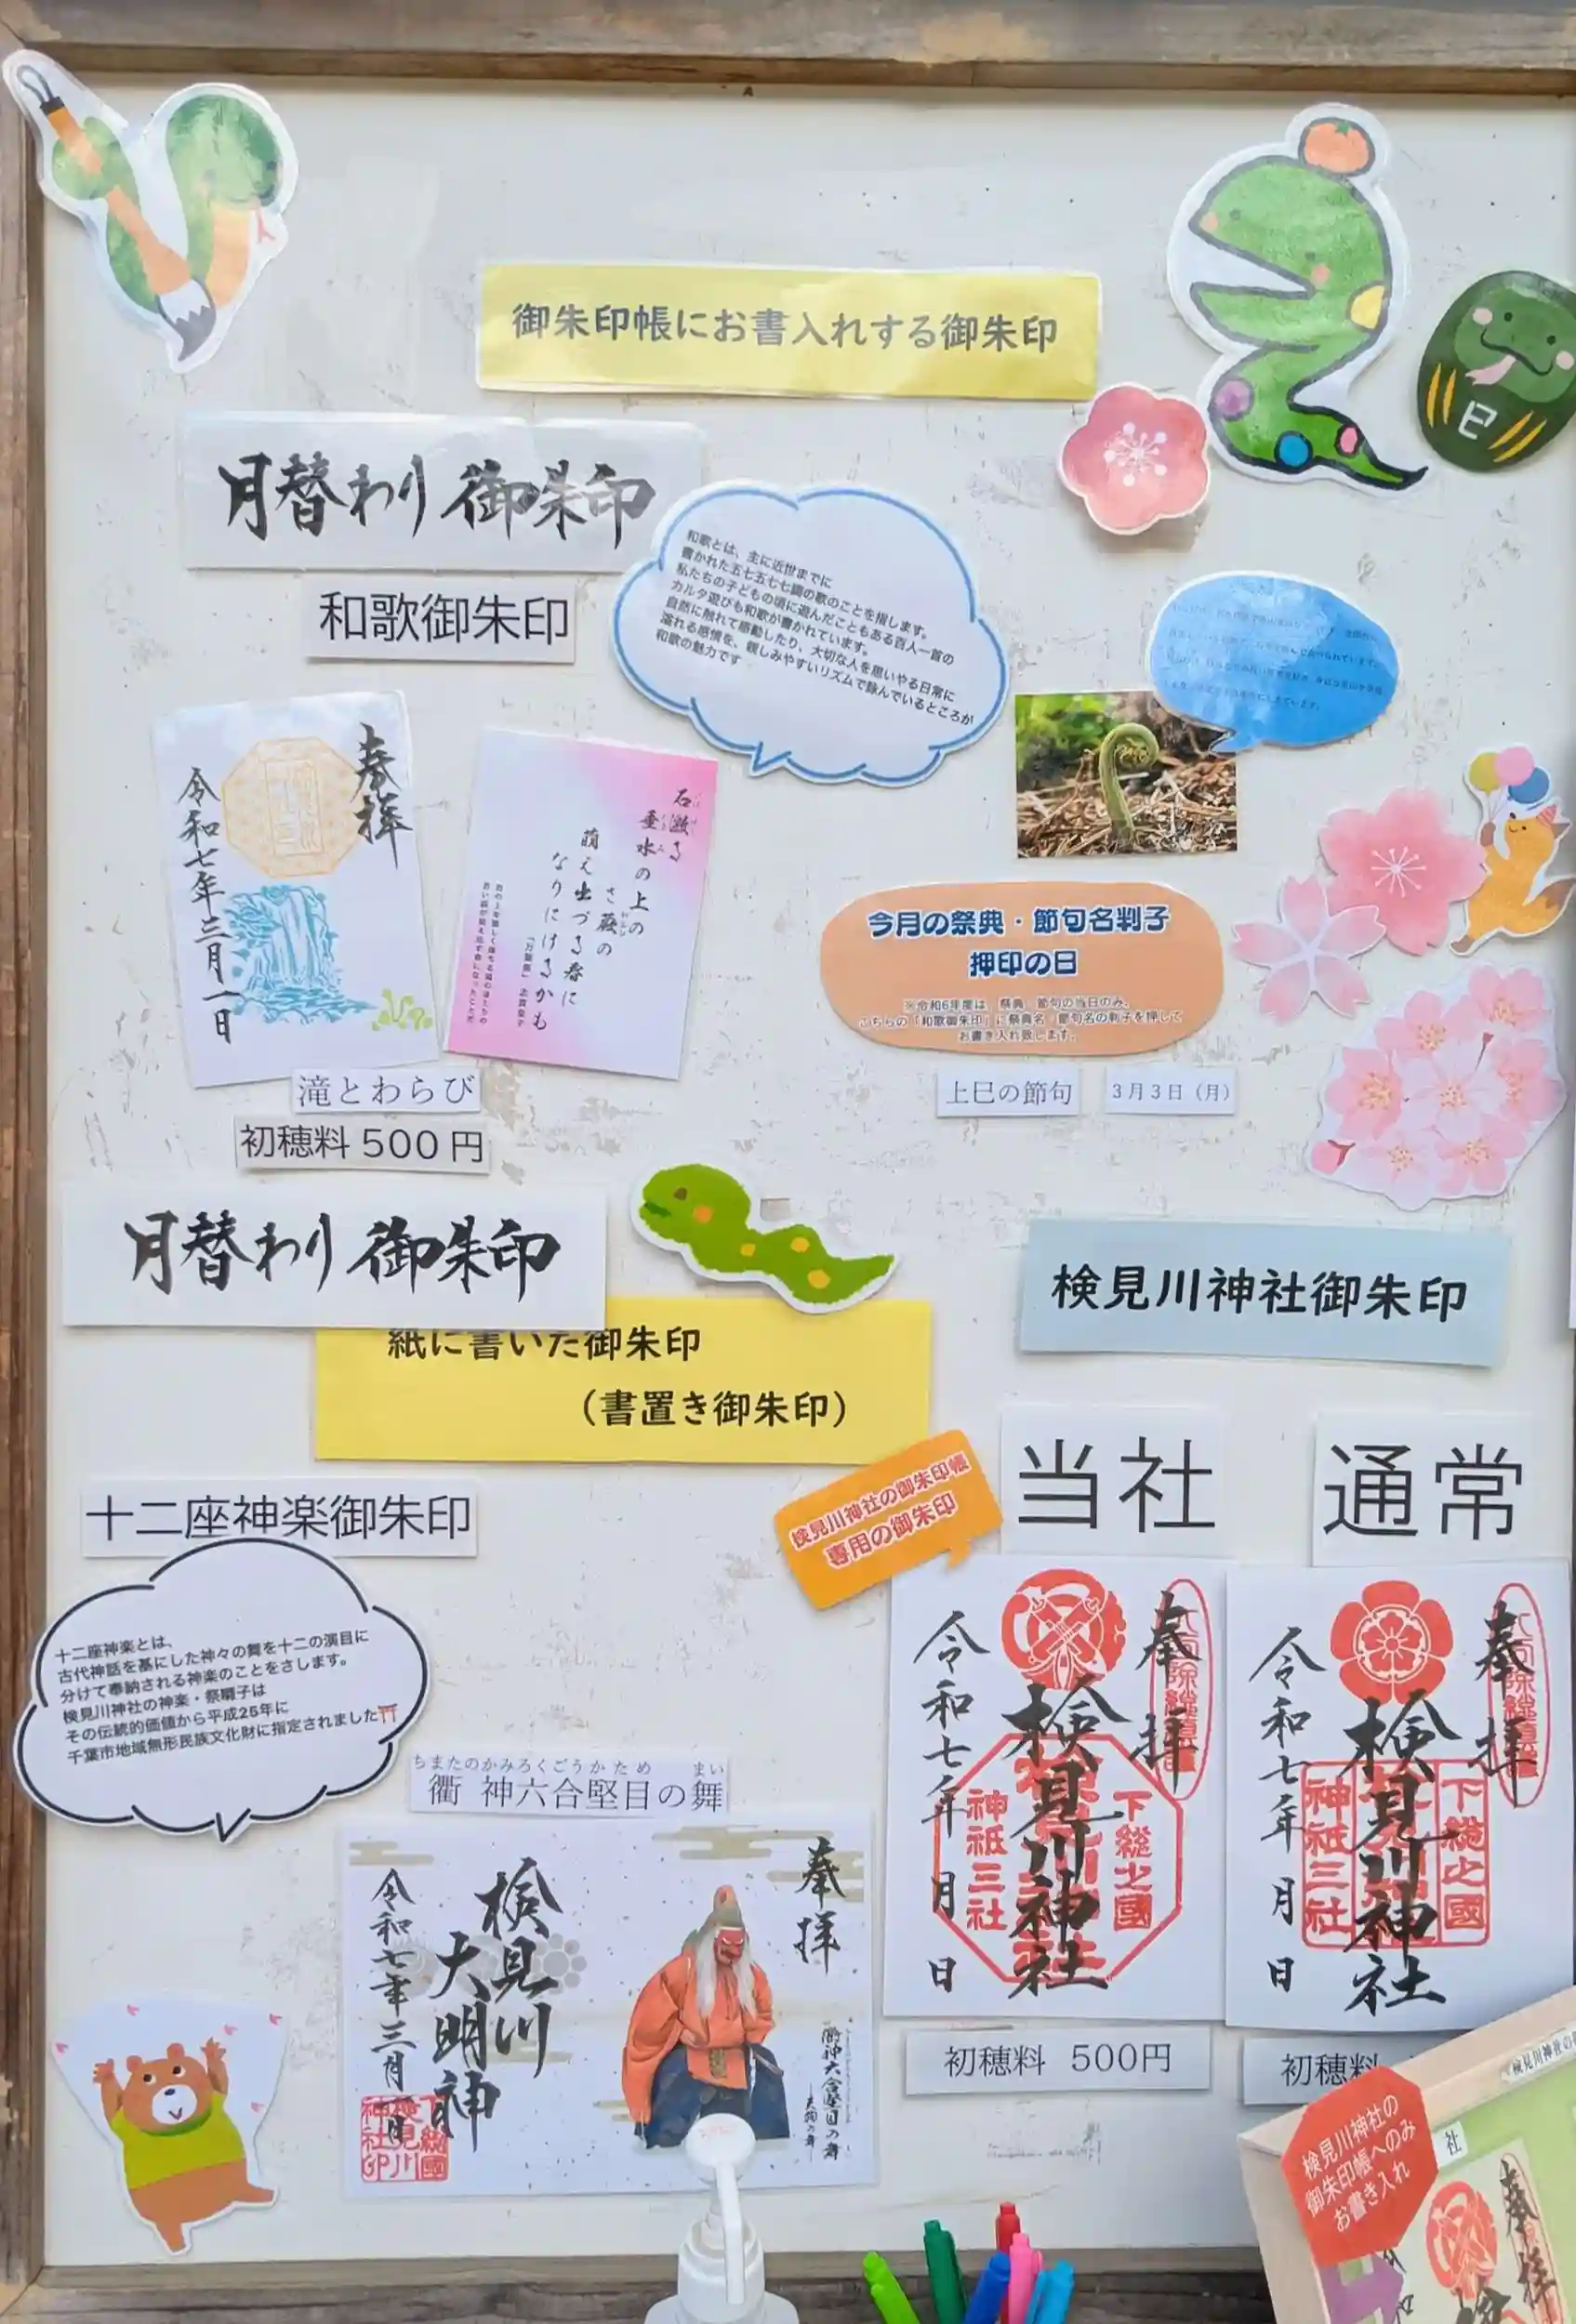 御朱印帳にお書入れする御朱印
巳
月替わり御朱印
和歌御朱印
和歌とは、主に近世までに
書かれた五七五七七調の歌のことを指します。
私たちの子どもの頃に遊んだこともある百人一首の
カルタ遊びも和歌が書かれています。
自然に触れて感動したり、大切な人を思いやる日常に
溢れる感情を、親しみやすいリズムで詠んでいるところが
和歌の魅力です
奉拝
令和七年三月一日
石激る
垂水の上の
さ蕨の
萌え出づる春に
なりにけるかも
「万葉集」志貴皇子
滝とわらび
初穂料 500 円
今月の祭典・節句名判子
押印の日
※令和6年度は、祭典・節句の当日のみ、
こちらの「和歌御朱印」に祭典名・節句名の判子を押して
お書き入れ致します。
上巳の節句
3月3日（月）
月替わり御朱印
紙に書いた御朱印
（書置き御朱印）
検見川神社御朱印
十二座神楽御朱印
検見川神社の御朱印帳
専用の御朱印
当社
通常
十二座神楽とは、
古代神話を基にした神々の舞を十二の演目に
分けて奉納される神楽のことをさします。
検見川神社の神楽・祭囃子は
その伝統的価値から平成25年に
千葉市地域無形民族文化財に指定されました⛩
ちまたのかみろくごうかため まい
衢神六合堅目の舞
奉拝
検見川
大明神
令和七年三月 日
衢神六合堅目の舞
奉拝
下総之國
検見川神社
神祇三社
令和七年 月 日
初穂料 500円
奉拝
下総之國
検見川神社
神祇三社
令和七年 月 日
初穂料
検見川神社の
御朱印帳へのみ
お書き入れ
社
奉拝